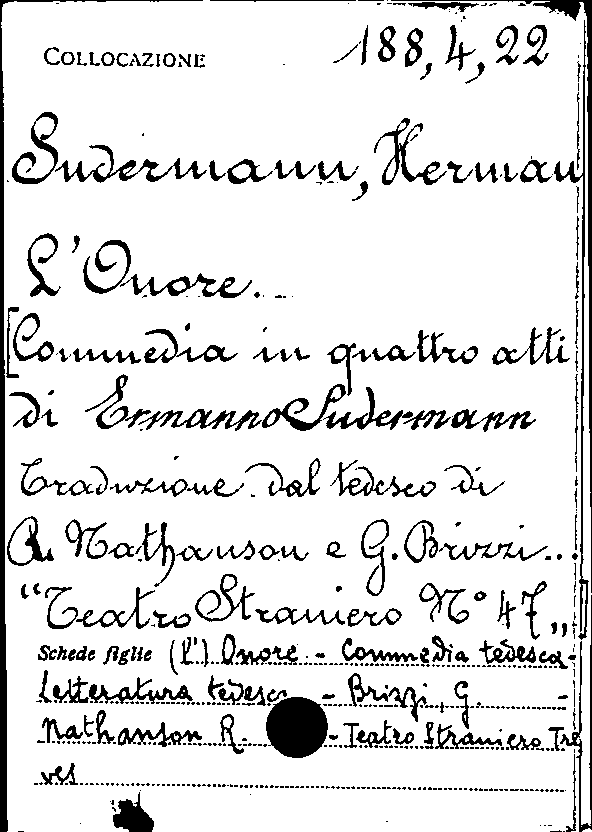 COLLOCAZIONE 188,4,22
Sudermann, Herman
L'Onore.
[Commedia in quattro atti
di Ermanno Sudermann
Traduzione dal tedesco di
R. Nathanson e G. Brizzi...
"Teatro Straniero N° 47„]
Schede figlie (L') Onore - Commedia tedesca -
Letteratura tedesca - Brizzi, G. -
Nathanson R. - Teatro Straniero Tre
ves